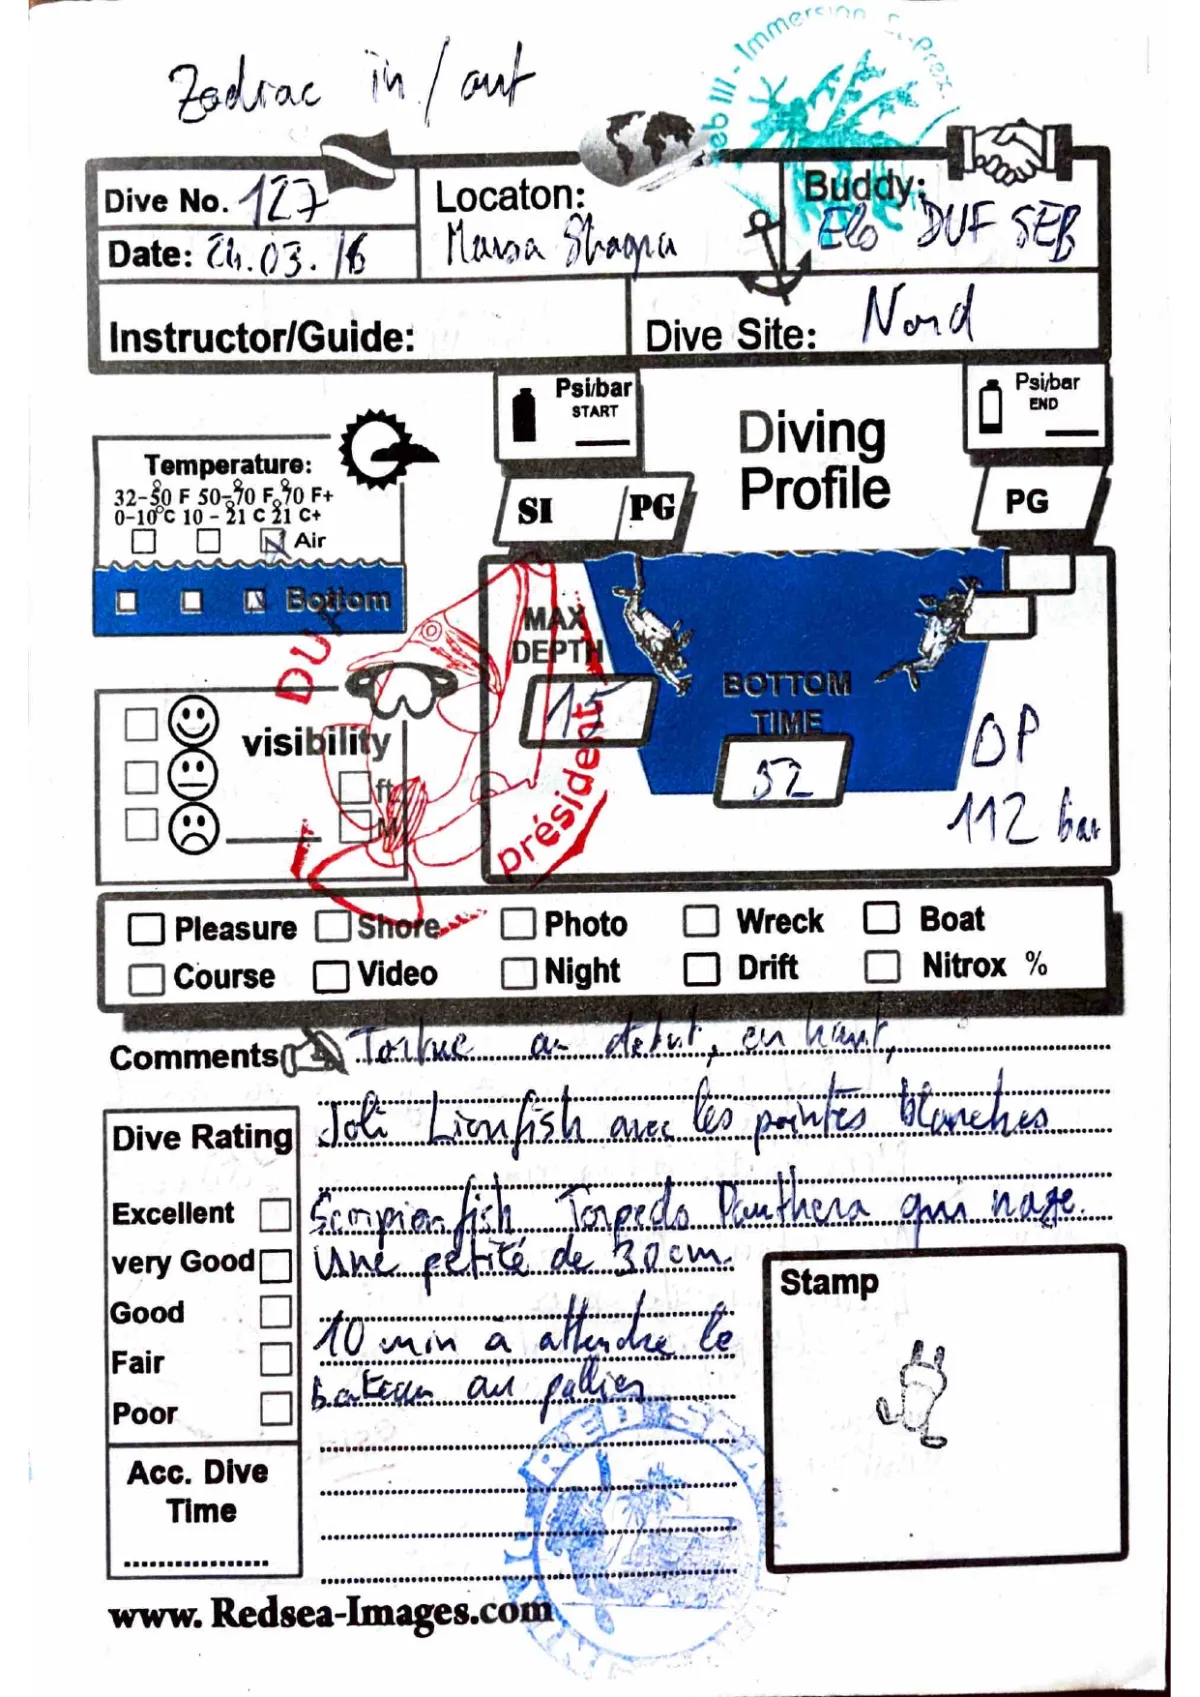 Zodiac in / out
Immersion
Dive No. 127
Date: 24.03.16
Locaton:
Marsa Shagra
Buddy:
Elo DUF SEB
Instructor/Guide:
Dive Site: Nord
Psi/bar
START
Psi/bar
END
Diving
Profile
SI / PG
PG
Temperature:
32-50 F 50-70 F 70 F+
0-10°C 10 - 21 C 21 C+
Air
Bottom
MAX
DEPTH
15
BOTTOM
TIME
52
DP
112 bar
DU
président
visibility
ft
M
Pleasure Shore Photo Wreck Boat
Course Video Night Drift Nitrox %
Comments Tortue au début, en haut,
Joli Lionfish avec les pointes blanches
Scorpionfish Torpedo Panthera qui nage.
Une petite de 30cm.
10 min à attendre le
bateau au pallier
Dive Rating
Excellent
very Good
Good
Fair
Poor
Acc. Dive
Time
Stamp
RED
www. Redsea-Images.com